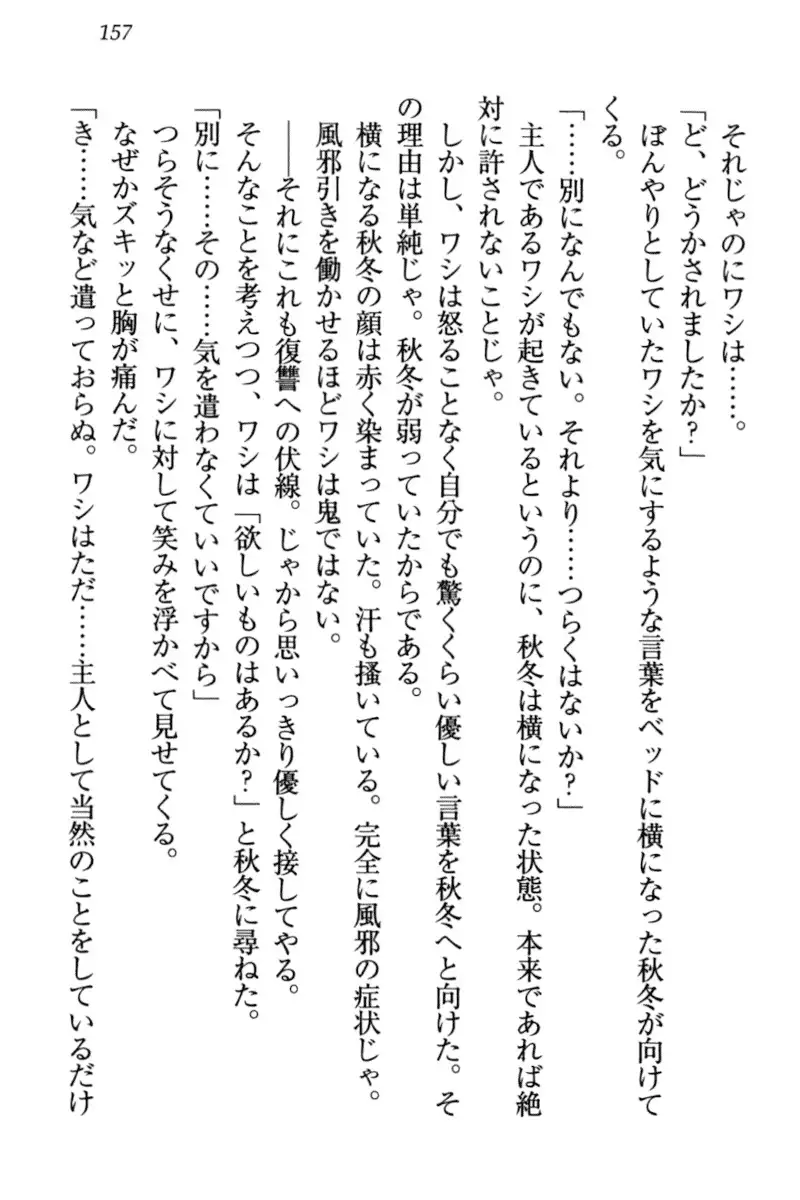 157
それじゃのにワシは……。
「ど、どうかされましたか？」
ぼんやりとしていたワシを気にするような言葉をベッドに横になった秋冬が向けて
くる。
「……別になんでもない。それより……つらくはないか？」
主人であるワシが起きているというのに、秋冬は横になった状態。本来であれば絶
対に許されないことじゃ。
しかし、ワシは怒ることなく自分でも驚くくらい優しい言葉を秋冬へと向けた。そ
の理由は単純じゃ。秋冬が弱っていたからである。
横になる秋冬の顔は赤く染まっていた。汗も掻いている。完全に風邪の症状じゃ。
風邪引きを働かせるほどワシは鬼ではない。
――それにこれも復讐への伏線。じゃから思いっきり優しく接してやる。
そんなことを考えつつ、ワシは「欲しいものはあるか？」と秋冬に尋ねた。
「別に……その……気を遣わなくていいですから」
つらそうなくせに、ワシに対して笑みを浮かべて見せてくる。
なぜかズキッと胸が痛んだ。
「き……気など遣っておらぬ。ワシはただ……主人として当然のことをしているだけ